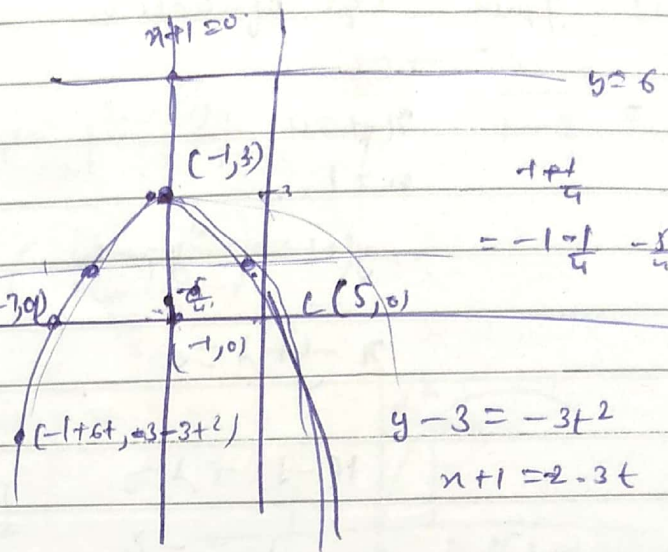 x+1=0
y=6
(-1,3)
3
-1+-1/4
= -1-1/4 -5/4
-7,0)
-5/4
(5,0)
(-1,0)
(-1+6t, -3-3t²)
y-3 = -3t²
x+1 = 2.3t